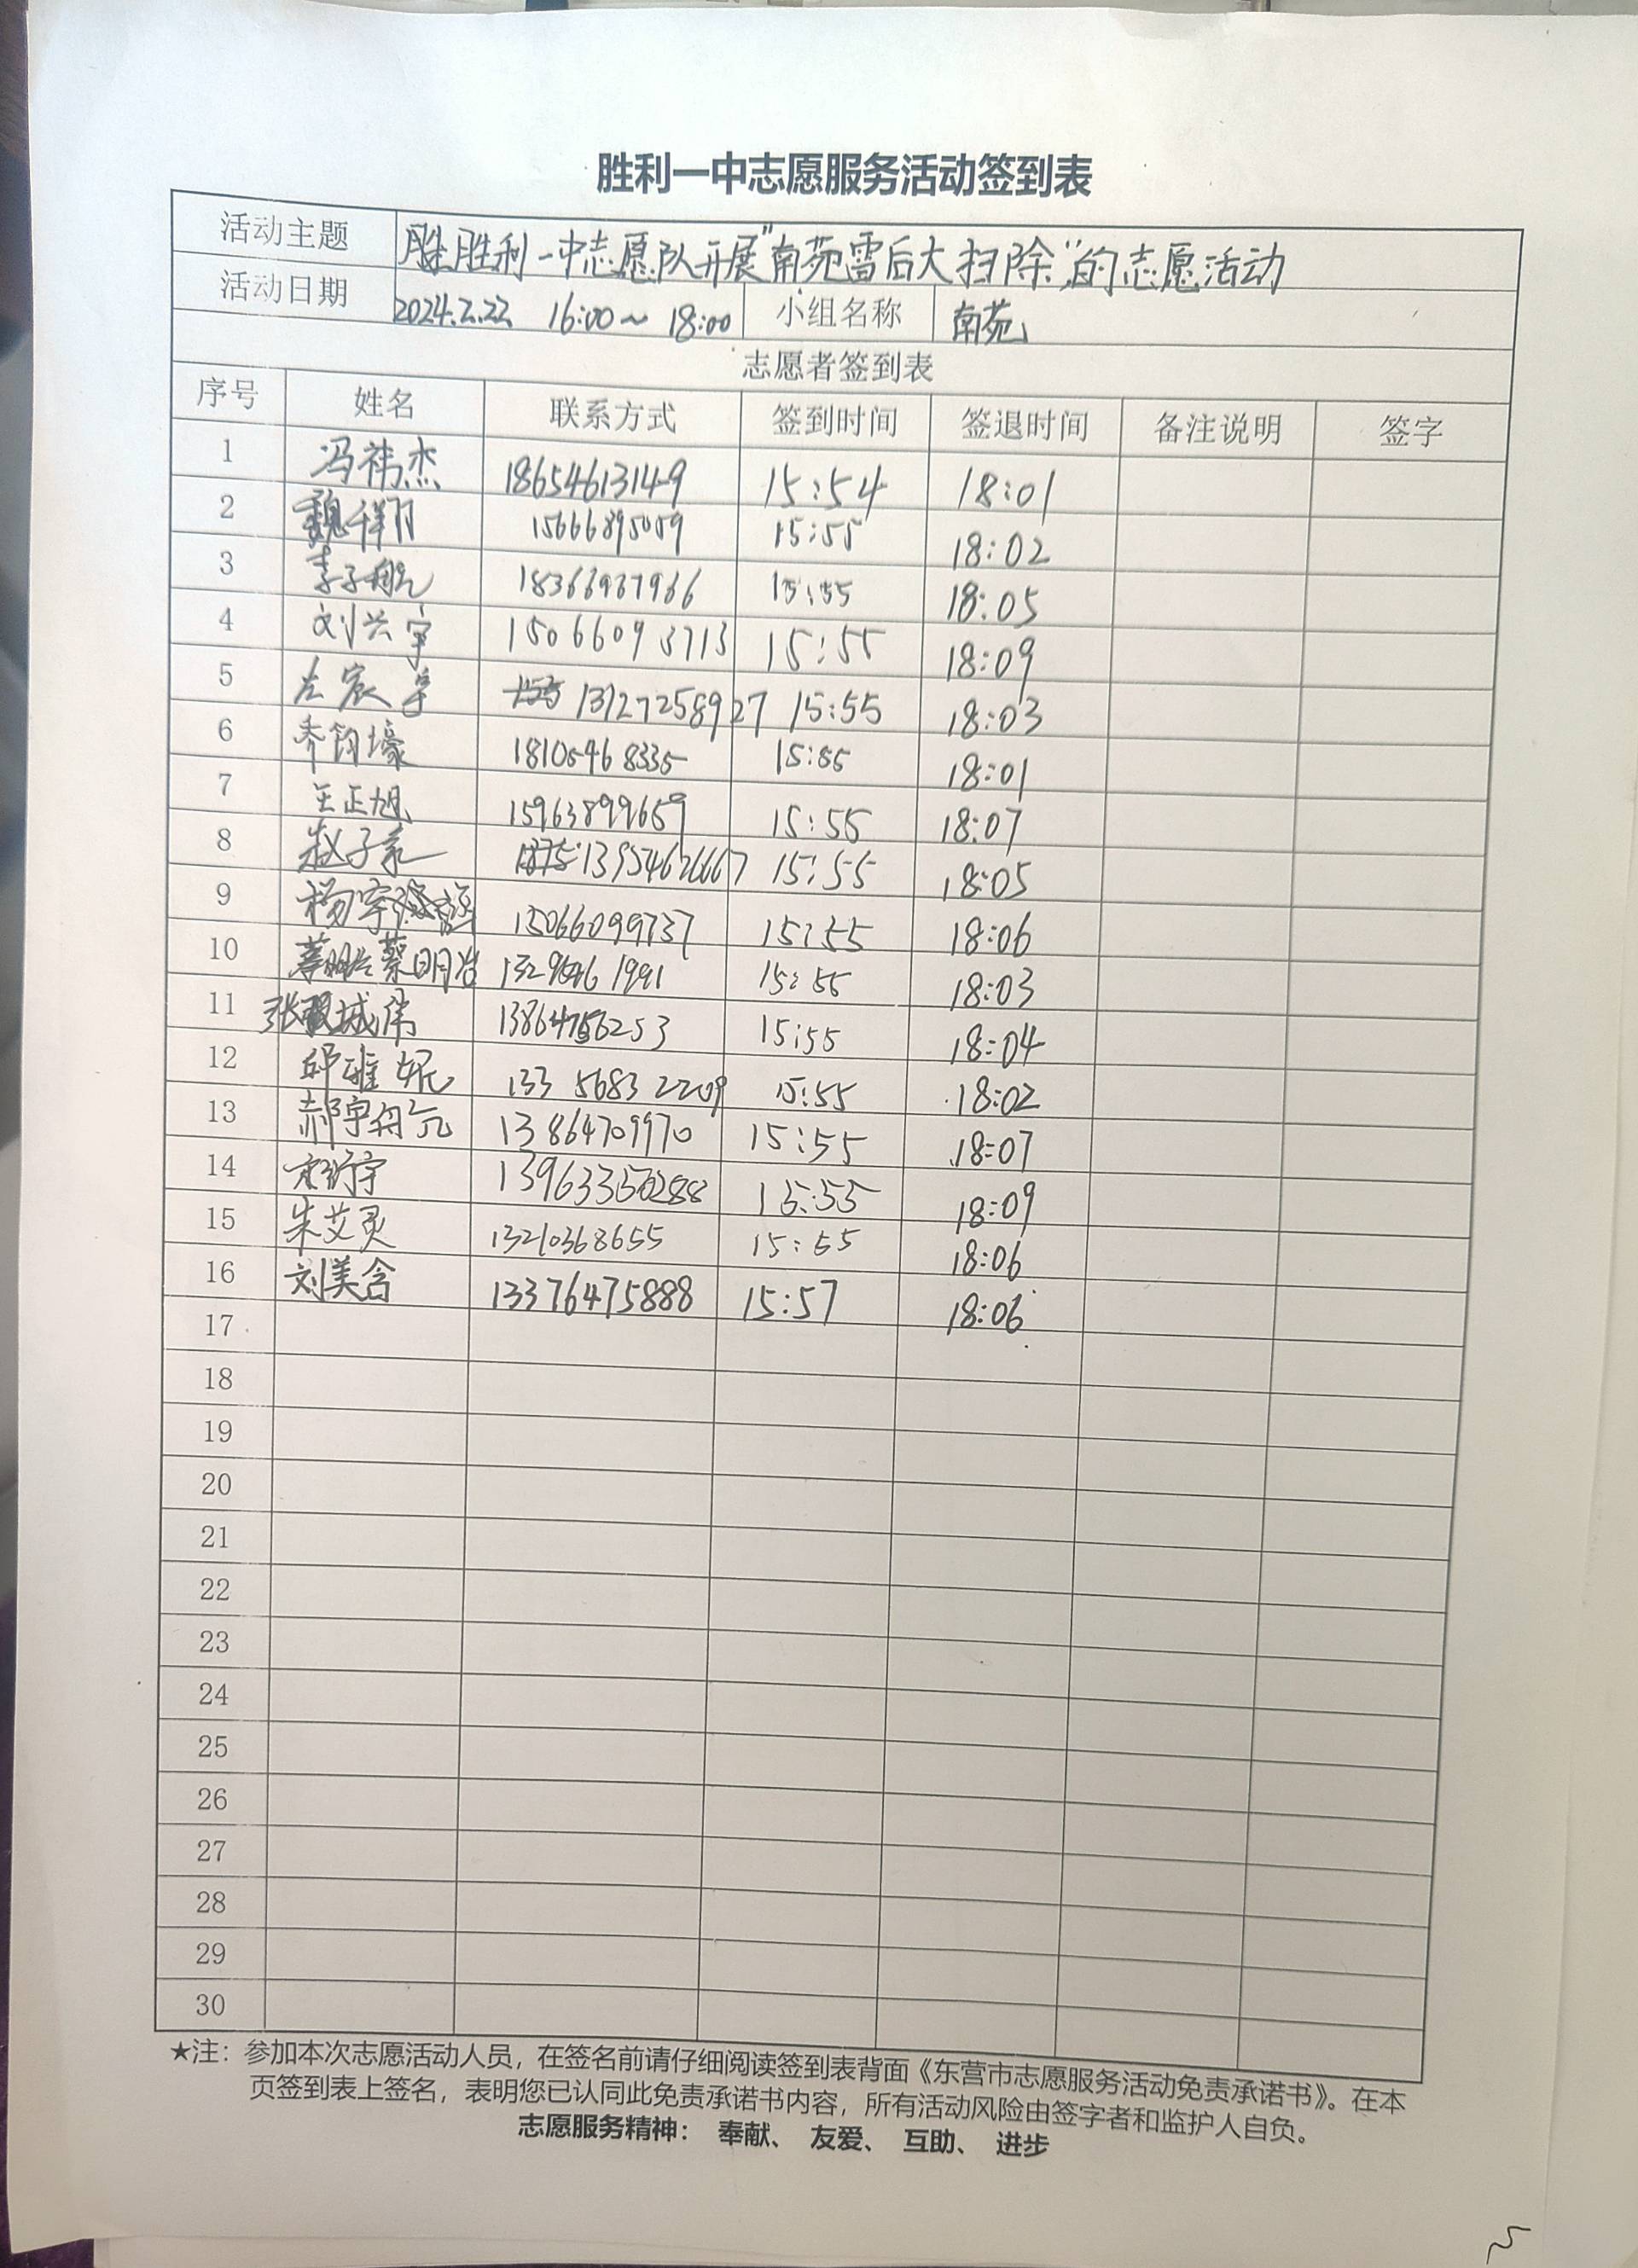 胜利一中志愿服务活动签到表
活动主题 胜利一中志愿队开展"南苑雪后大扫除"的志愿活动
活动日期 2024.2.22 16:00～18:00 小组名称 南苑
志愿者签到表
序号 姓名 联系方式 签到时间 签退时间 备注说明 签字
1 冯祎杰 18654613149 15:54 18:01
2 魏祥翔 15666895059 15:55 18:02
3 李子航 18366937966 15:55 18:05
4 刘兴宇 15066093713 15:55 18:09
5 左宸宇 13127258927 15:55 18:03
6 乔钧壕 18105468335 15:55 18:01
7 王正旭 15963899659 15:55 18:07
8 赵子 13954626667 15:55 18:05
9 杨宇 15066099737 15:55 18:06
10 蔡明 15:55 18:03
11 张 城伟 13864756253 15:55 18:04
12 邱雅妮 133 5683 2209 15:55 18:02
13 郝宇舟 13864709970 15:55 18:07
14 宇 15:55 18:09
15 朱艾灵 13210368655 15:55 18:06
16 刘美含 13376475888 15:57 18:06
17
18
19
20
21
22
23
24
25
26
27
28
29
30
★注：参加本次志愿活动人员，在签名前请仔细阅读签到表背面《东营市志愿服务活动免责承诺书》。在本
页签到表上签名，表明您已认同此免责承诺书内容，所有活动风险由签字者和监护人自负。
志愿服务精神： 奉献、 友爱、 互助、 进步